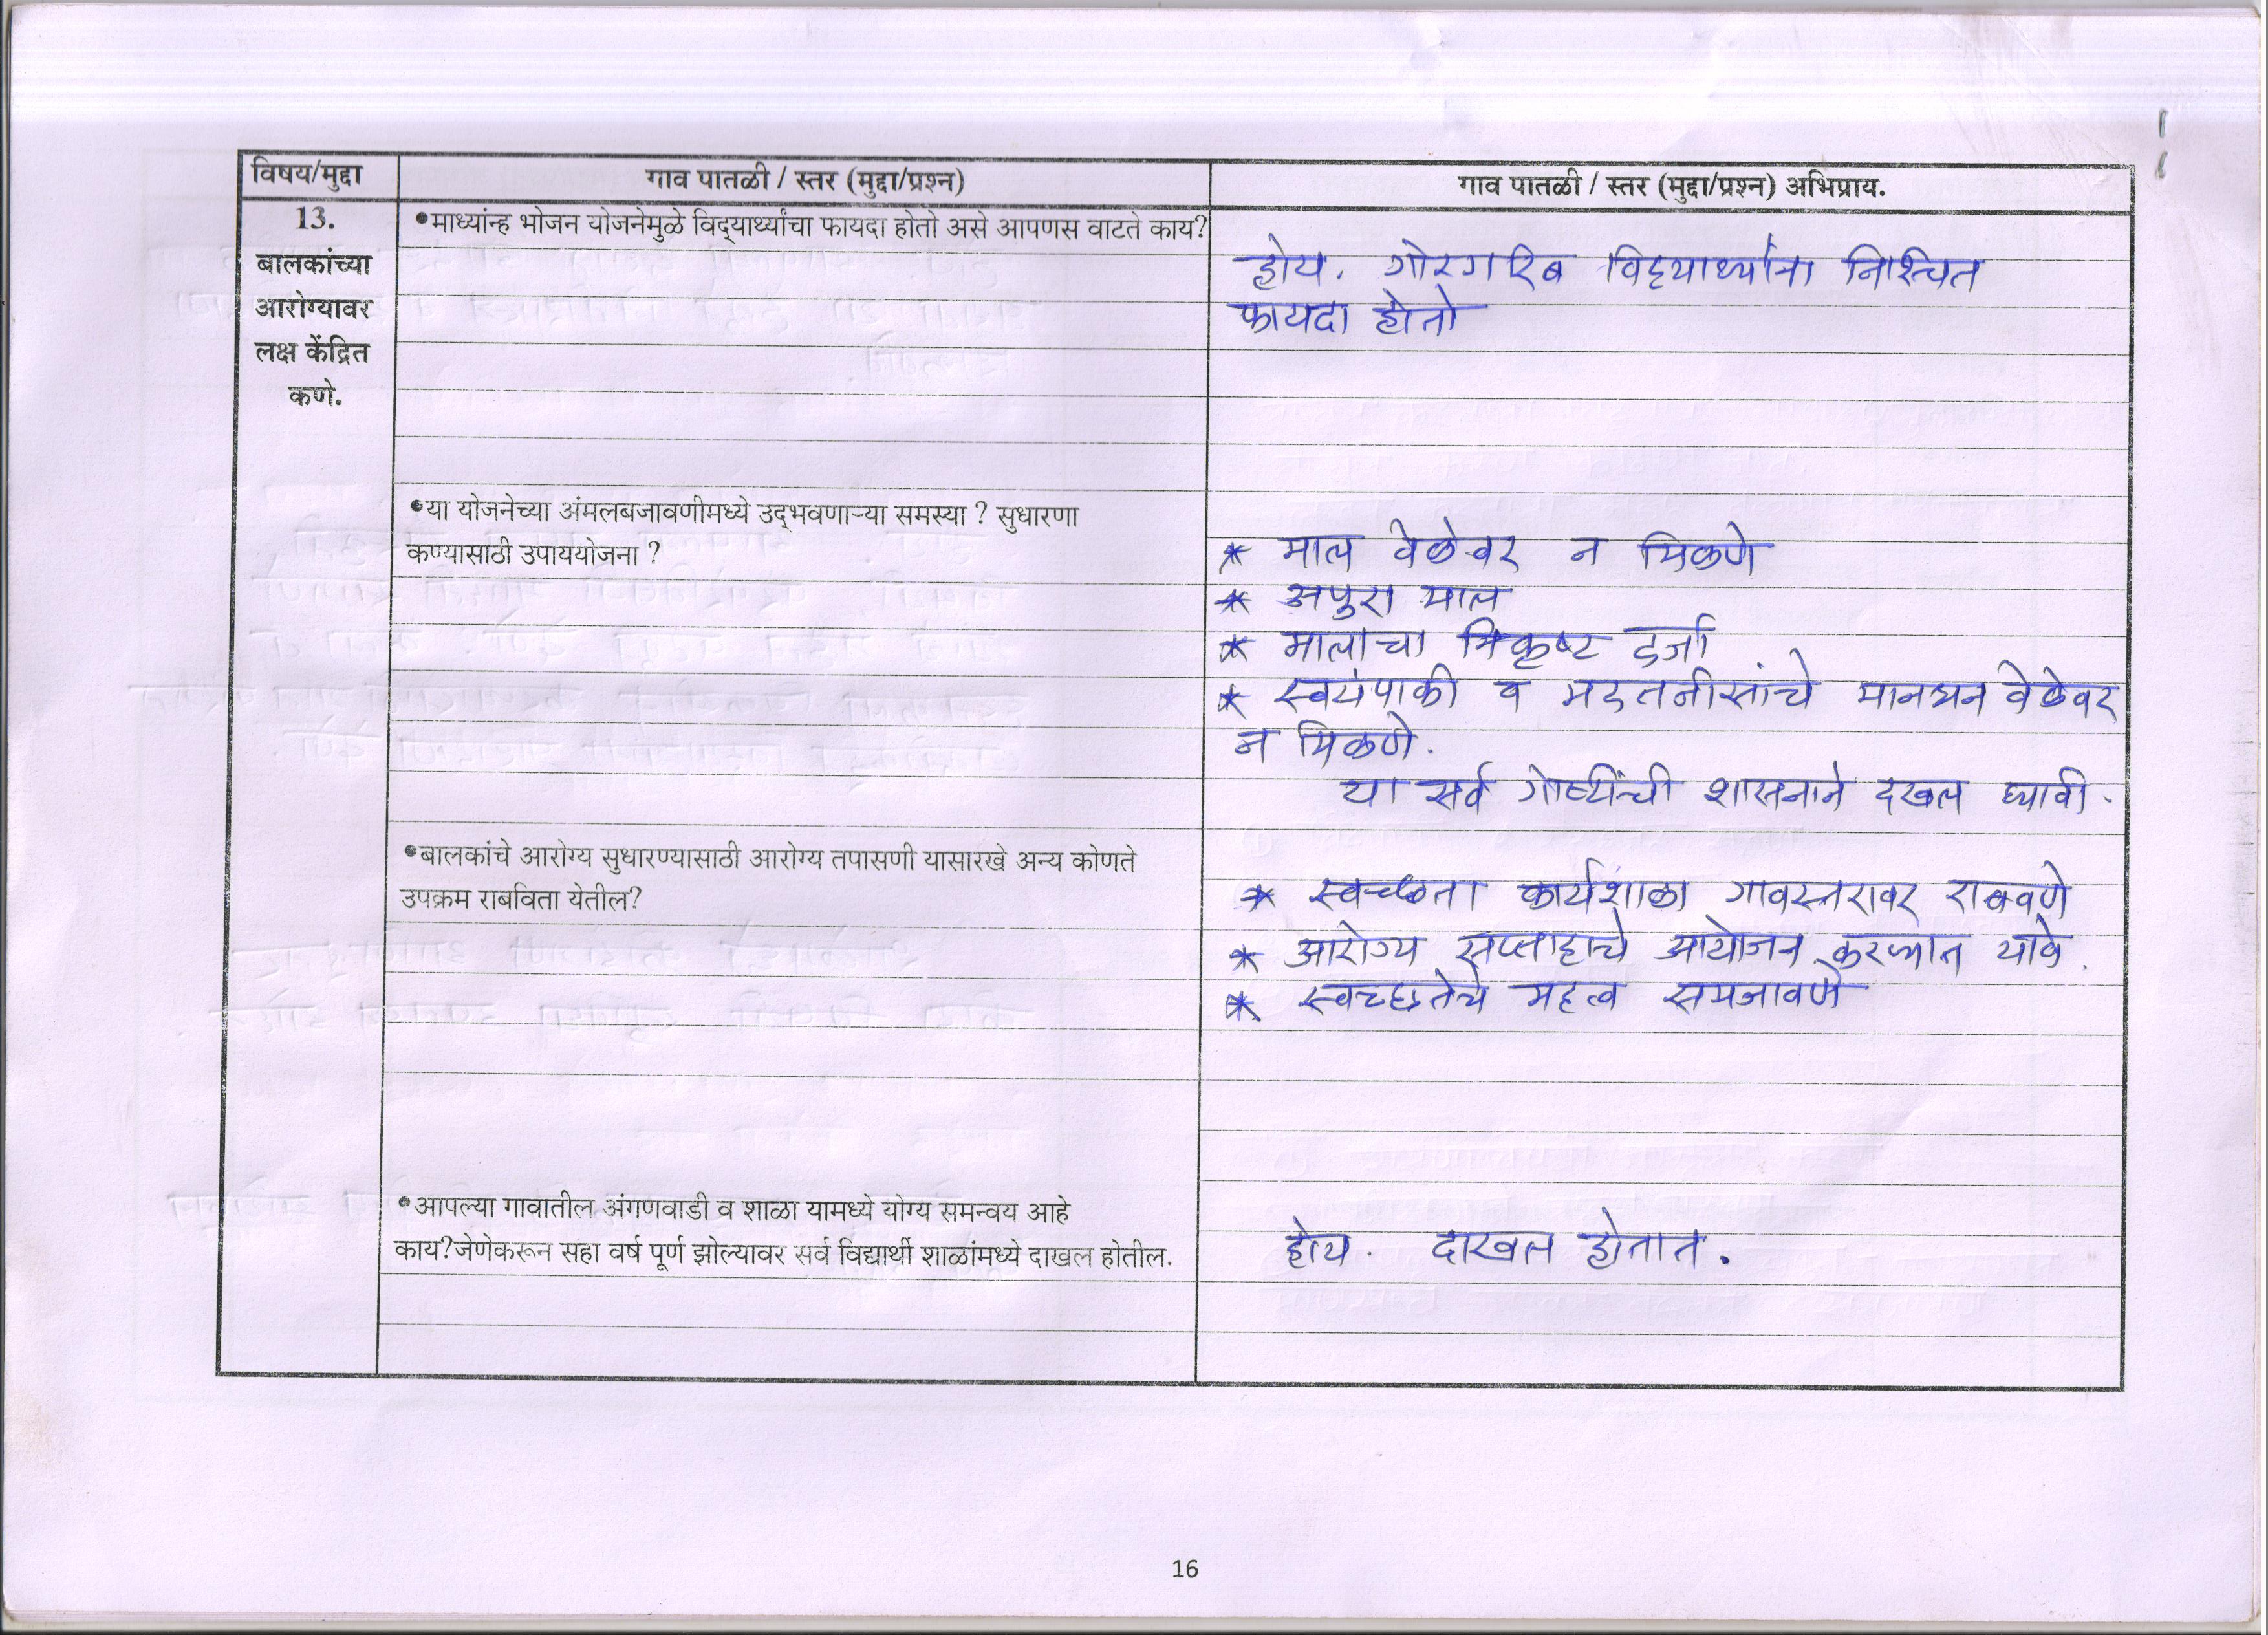 विषय/मुद्दा
गाव पातळी / स्तर (मुद्दा/प्रश्न)
गाव पातळी / स्तर (मुद्दा/प्रश्न) अभिप्राय.
13.
बालकांच्या
आरोग्यावर
लक्ष केंद्रित
कणे.
•माध्यांन्ह भोजन योजनेमुळे विद्‌यार्थ्यांचा फायदा होतो असे आपणस वाटते काय?
होय. गोरगरिब विद्यार्थ्यांना निश्चित
फायदा होतो
•या योजनेच्या अंमलबजावणीमध्ये उद्‌भवणाऱ्या समस्या ? सुधारणा
कण्यासाठी उपाययोजना ?
* माल वेळेवर न मिळणे
* अपुरा माल
* मालाचा निकृष्ट दर्जा
* स्वयंपाकी व मदतनीसांचे मानधन वेळेवर
न मिळणे.
या सर्व गोष्टींची शासनाने दखल घ्यावी.
•बालकांचे आरोग्य सुधारण्यासाठी आरोग्य तपासणी यासारखे अन्य कोणते
उपक्रम राबविता येतील?
* स्वच्छता कार्यशाळा गावस्तरावर राबवणे
* आरोग्य सप्ताहाचे आयोजन करण्यात यावे.
* स्वच्छतेचे महत्व समजावणे
•आपल्या गावातील अंगणवाडी व शाळा यामध्ये योग्य समन्वय आहे
काय?जेणेकरून सहा वर्ष पूर्ण झोल्यावर सर्व विद्यार्थी शाळांमध्ये दाखल होतील.
होय. दाखल होतात.
16